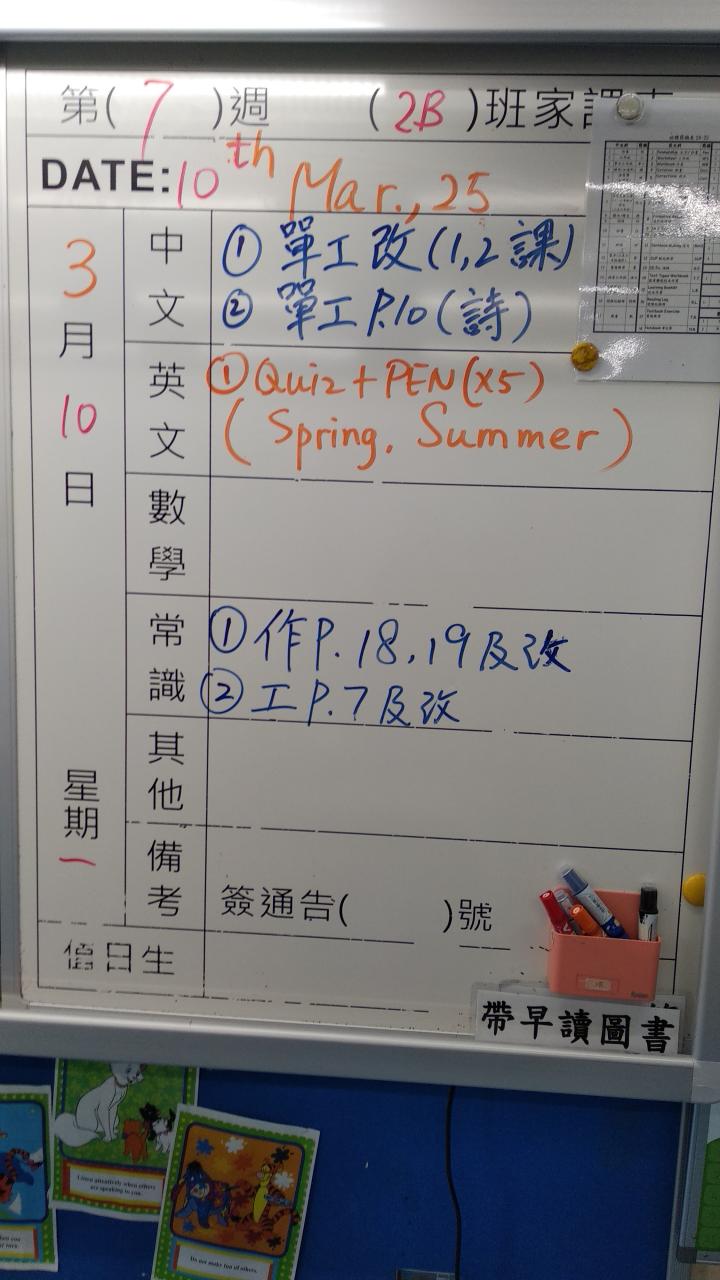 第( 7 )週 ( 2B )班家課表
DATE: 10th Mar., 25
3月10日 星期一
中文
① 單工改(1,2課)
② 單工P.10(詩)
英文
① Quiz + PEN(x5)
( Spring, Summer )
數學
常識
① 作P.18,19及改
② 工P.7及改
其他
備考
簽通告( )號
值日生
帶早讀圖書
Listen attentively when others
are speaking to you.
Do not make fun of others.